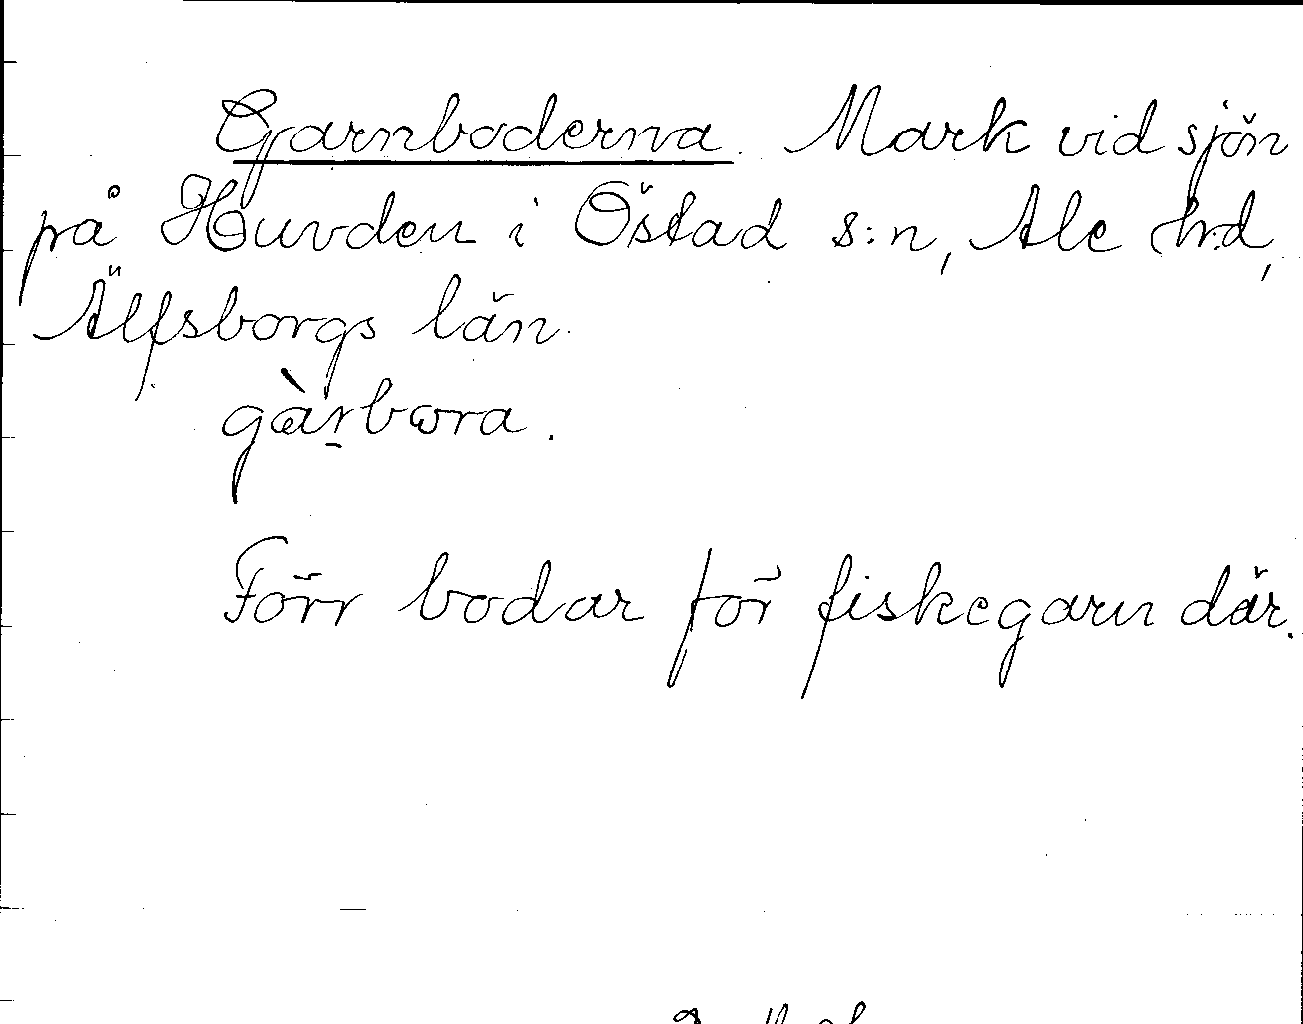 Garnboderna. Mark vid sjön
på Huvden i Östad s:n, Ale hd,
Älfsborgs län.
gàrbωra.
Förr bodar för fiskegarn där.